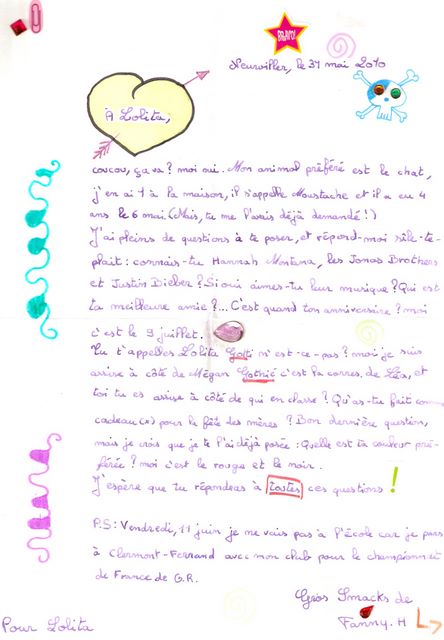 BRAVO!
Neuwiller, le 31 mai 2010
À Lolita,
coucou, ça va ? moi oui. Mon animal préféré est le chat,
j'en ai 1 à la maison, il s'appelle Moustache et il a eu 4
ans le 6 mai. (Mais, tu me l'avais déjà demandé !)
J'ai pleins de questions à te poser, et répond-moi sîle-te-
plait : connais-tu Hannah Montana, les Jonas Brothers
et Justin Bieber ? Si oui aimes-tu leur musique ? Qui est
ta meilleure amie ?... C'est quand ton anniversaire ? moi
c'est le 9 juillet.
Tu t'appelles Lolita n'est-ce-pas ? moi je suis
assise à côté de Mégan Gothié c'est la corres. de Léa, et
toi tu es assise à côté de qui en classe ? Qu'as-tu fait comme
cadeau(x) pour la fête des mères ? Bon dernière question,
mais je crois que je te l'ai déjà posée : Quelle est ta couleur pré-
férée ? moi c'est le rouge et le noir.
J'espère que tu répondras à toutes ces questions !
P.S : Vendredi, 11 juin je ne vais pas à l'école car je pars
à Clermont-Ferrand avec mon club pour le championnat
de France de G.R.
Gros Smacks de
Fanny. H
Pour Lolita